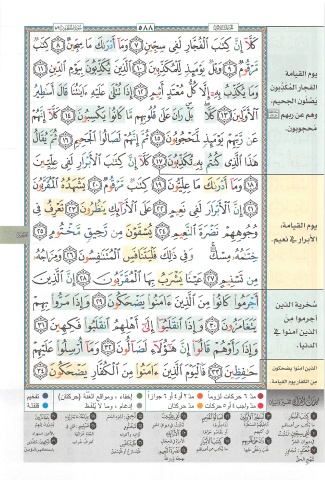 ٥٨٨
كَلَّا إِنَّ كِتَٰبَ ٱلْفُجَّارِ لَفِى سِجِّينٍ ٧ وَمَآ أَدْرَىٰكَ مَا سِجِّينٌ ٨ كِتَٰبٌ
مَّرْقُومٌ ٩ وَيْلٌ يَوْمَئِذٍ لِّلْمُكَذِّبِينَ ١٠ ٱلَّذِينَ يُكَذِّبُونَ بِيَوْمِ ٱلدِّينِ ١١
وَمَا يُكَذِّبُ بِهِۦٓ إِلَّا كُلُّ مُعْتَدٍ أَثِيمٍ ١٢ إِذَا تُتْلَىٰ عَلَيْهِ ءَايَٰتُنَا قَالَ أَسَٰطِيرُ
ٱلْأَوَّلِينَ ١٣ كَلَّا بَلْ رَانَ عَلَىٰ قُلُوبِهِم مَّا كَانُوا۟ يَكْسِبُونَ ١٤ كَلَّآ إِنَّهُمْ
عَن رَّبِّهِمْ يَوْمَئِذٍ لَّمَحْجُوبُونَ ١٥ ثُمَّ إِنَّهُمْ لَصَالُوا۟ ٱلْجَحِيمِ ١٦ ثُمَّ يُقَالُ
هَٰذَا ٱلَّذِى كُنتُم بِهِۦ تُكَذِّبُونَ ١٧ كَلَّآ إِنَّ كِتَٰبَ ٱلْأَبْرَارِ لَفِى عِلِّيِّينَ
١٨ وَمَآ أَدْرَىٰكَ مَا عِلِّيُّونَ ١٩ كِتَٰبٌ مَّرْقُومٌ ٢٠ يَشْهَدُهُ ٱلْمُقَرَّبُونَ
٢١ إِنَّ ٱلْأَبْرَارَ لَفِى نَعِيمٍ ٢٢ عَلَى ٱلْأَرَآئِكِ يَنظُرُونَ ٢٣ تَعْرِفُ فِى
وُجُوهِهِمْ نَضْرَةَ ٱلنَّعِيمِ ٢٤ يُسْقَوْنَ مِن رَّحِيقٍ مَّخْتُومٍ ٢٥
خِتَٰمُهُۥ مِسْكٌ وَفِى ذَٰلِكَ فَلْيَتَنَافَسِ ٱلْمُتَنَٰفِسُونَ ٢٦ وَمِزَاجُهُۥ
مِن تَسْنِيمٍ ٢٧ عَيْنًا يَشْرَبُ بِهَا ٱلْمُقَرَّبُونَ ٢٨ إِنَّ ٱلَّذِينَ
أَجْرَمُوا۟ كَانُوا۟ مِنَ ٱلَّذِينَ ءَامَنُوا۟ يَضْحَكُونَ ٢٩ وَإِذَا مَرُّوا۟ بِهِمْ
يَتَغَامَزُونَ ٣٠ وَإِذَا ٱنقَلَبُوٓا۟ إِلَىٰٓ أَهْلِهِمُ ٱنقَلَبُوا۟ فَكِهِينَ ٣١
وَإِذَا رَأَوْهُمْ قَالُوٓا۟ إِنَّ هَٰٓؤُلَآءِ لَضَآلُّونَ ٣٢ وَمَآ أُرْسِلُوا۟ عَلَيْهِمْ
حَٰفِظِينَ ٣٣ فَٱلْيَوْمَ ٱلَّذِينَ ءَامَنُوا۟ مِنَ ٱلْكُفَّارِ يَضْحَكُونَ ٣٤
يوم القيامة
الفجار المكذبون
يصلون الجحيم،
وهم عن ربهم
محجوبون.
يوم القيامة،
الأبرار في نعيم.
سُخرية الذين
أجرموا من
الذين آمنوا في
الدنيا.
الذين آمنوا يضحكون
من الكفار يوم القيامة.
مد ٦ حركات لزوماً
مد ٢ أو ٤ أو ٦ جوازاً
إخفاء، ومواقع الغُنَّة (حركتان)
تفخيم
مد واجب ٤ أو ٥ حركات
مد حركتان
إدغام، وما لا يُلفظ
قلقلة